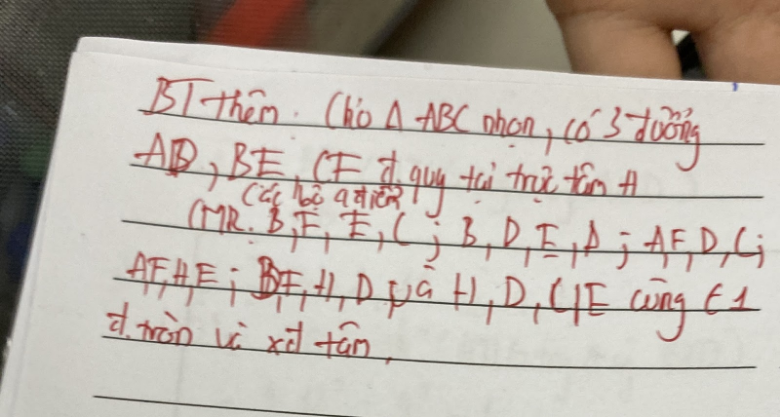 BT thêm. Cho Δ ABC nhọn, có 3 đường
AD, BE, CF đ.quy tại trực tâm H
(các bộ 4 điểm)
CMR. B,F,E,C; B,D,E,A; A,F,D,C;
A,F,H,E; B,F,H,D và H,D,C,E cùng ∈ 1
đ.tròn và xđ tâm.